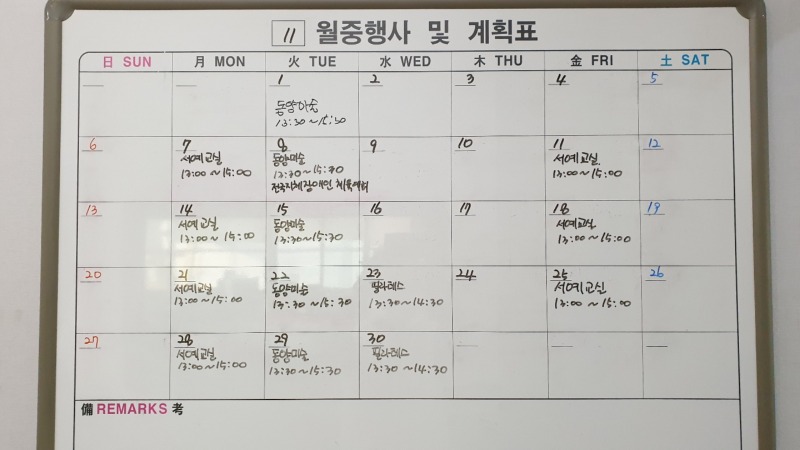 11 월중행사 및 계획표
日 SUN 月 MON 火 TUE 水 WED 木 THU 金 FRI 土 SAT
1 2 3 4 5
동양미술
13:30~15:30
6 7 8 9 10 11 12
서예교실 동양미술 서예교실
13:00~15:00 13:30~15:30 13:00~15:00
13 14 15 16 17 18 19
서예교실 동양미술 서예교실
13:00~15:00 13:30~15:30 13:00~15:00
20 21 22 23 24 25 26
서예교실 동양미술 필라테스 서예교실
13:00~15:00 13:30~15:30 13:30~14:30 13:00~15:00
27 28 29 30
서예교실 동양미술 필라테스
13:00~15:00 13:30~15:30 13:30~14:30
備 REMARKS 考